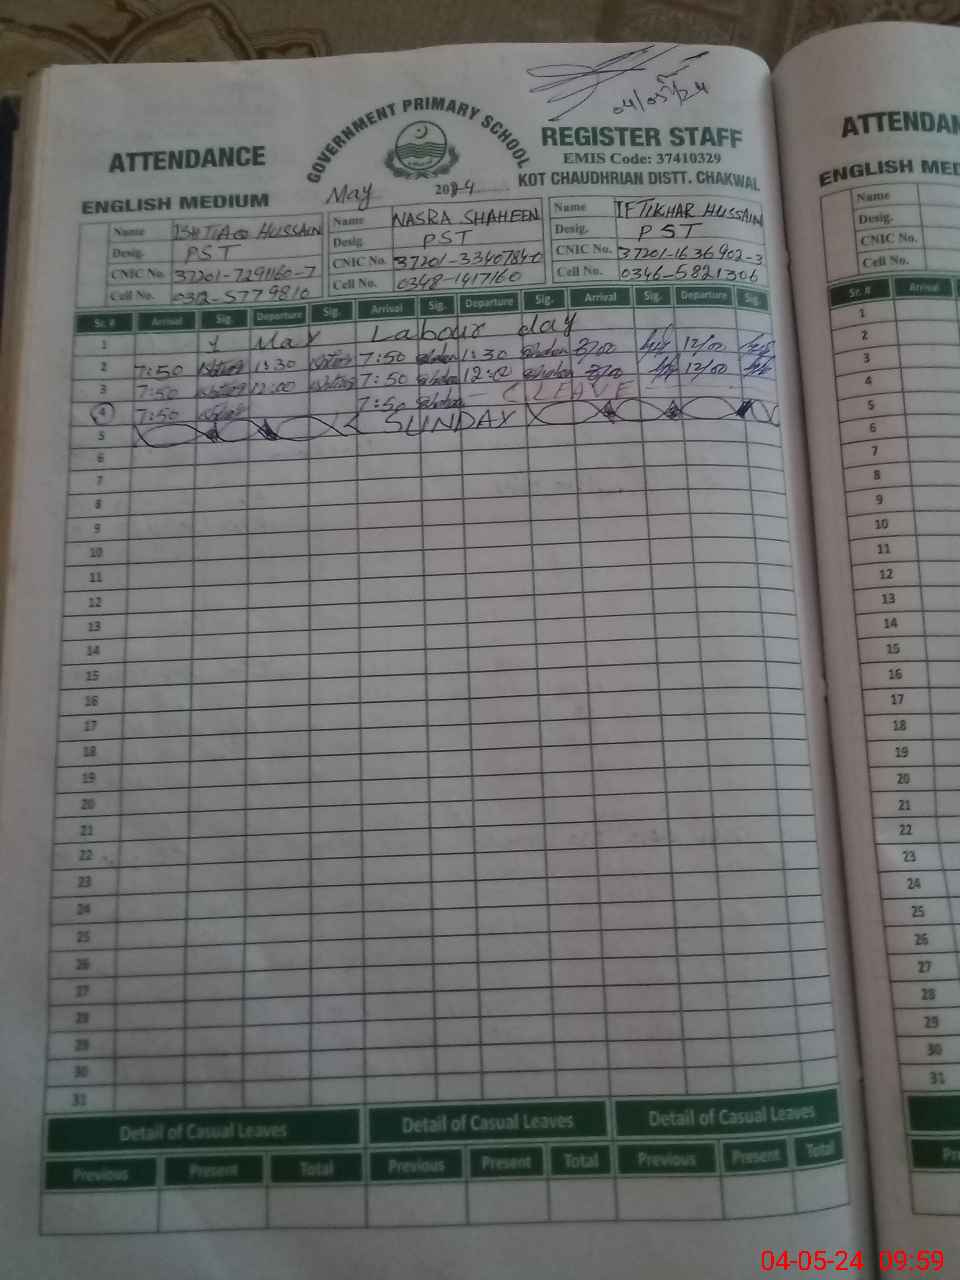 04/05/24
ATTENDANCE
GOVERNMENT PRIMARY SCHOOL
REGISTER STAFF
EMIS Code: 37410329
ENGLISH MEDIUM
May 2024
KOT CHAUDHRIAN DISTT. CHAKWAL
Name ISHTIAQ HUSSAIN Name NASRA SHAHEEN Name IFTIKHAR HUSSAIN
Desig. PST Desig. PST Desig. PST
CNIC No. 37201-7291160-7 CNIC No. 37201-3340784-0 CNIC No. 37201-1636902-3
Cell No. 0312-5779810 Cell No. 0348-1417160 Cell No. 0346-5821306
Sr. # Arrival Sig. Departure Sig. Arrival Sig. Departure Sig. Arrival Sig. Departure Sig.
1 1 May Labour day
2 7:50 1:30 7:50 1:30 8/00 12/00
3 7:50 12:00 7:50 12:00 8/00 12/00
4 7:50 7:50 LEAVE
5 SUNDAY
6
7
8
9
10
11
12
13
14
15
16
17
18
19
20
21
22
23
24
25
26
27
28
29
30
31
Detail of Casual Leaves Detail of Casual Leaves Detail of Casual Leaves
Previous Present Total Previous Present Total Previous Present Total
ATTENDAN
ENGLISH MED
Name
Desig.
CNIC No.
Cell No.
Sr. # Arrival
1
2
3
4
5
6
7
8
9
10
11
12
13
14
15
16
17
18
19
20
21
22
23
24
25
26
27
28
29
30
31
Pr
04-05-24 09:59